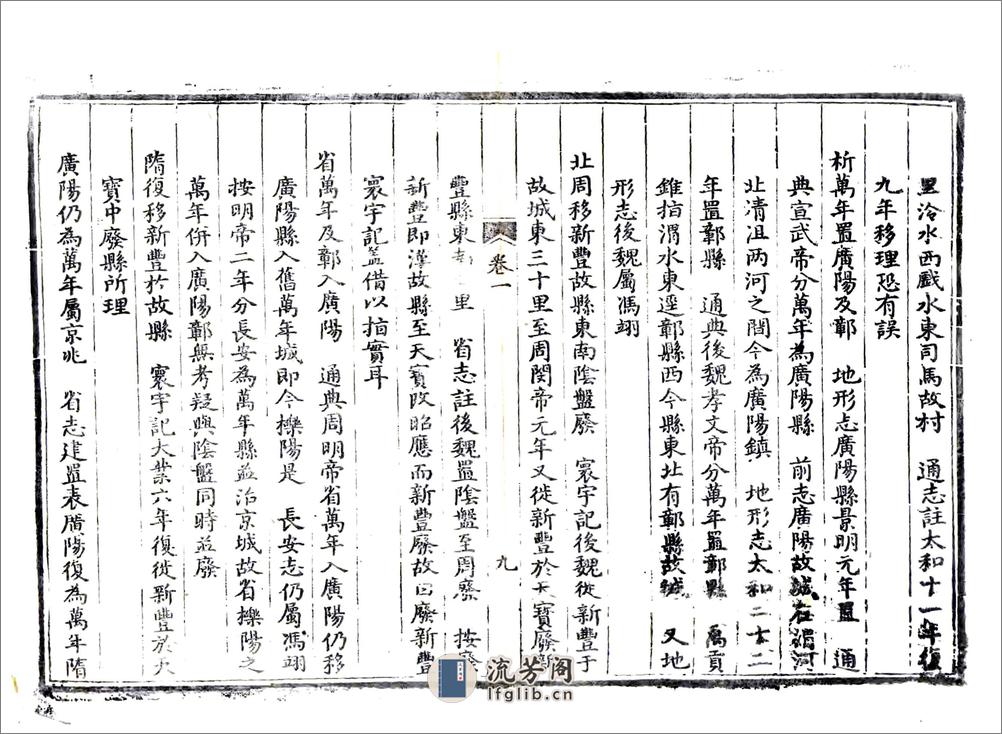 里泠水西戲水東司馬故村　通志註太和十一年復
九年移理恐有誤
析萬年置廣陽及鄣　地形志廣陽縣景明元年置　通
典宣武帝分萬年為廣陽縣　前志廣陽故城在渭河
北清沮两河之閒今為廣陽鎮　地形志太和二十二
年置鄣縣　通典後魏孝文帝分萬年置鄣縣　禹貢
錐指渭水東逕鄣縣西今縣東北有鄣縣故城　又地
形志後魏屬馮翊
北周移新豐故縣東南陰盤廢　寰宇記後魏徙新豐于
故城東三十里至周閔帝元年又徙新豐於天寶廢新
卷一
九
豐縣東南　里　省志註後魏置陰盤至周廢　按廢
新豐即漢故縣至天寶改昭應而新豐廢故曰廢新豐
寰宇記蓋借以指實耳
省萬年及鄣入廣陽　通典周明帝省萬年入廣陽仍移
廣陽縣入舊萬年城即今櫟陽是　長安志仍屬馮翊
按明帝二年分長安為萬年縣並治京城故省櫟陽之
萬年併入廣陽鄣無考疑與陰盤同時並廢
隋復移新豐於故縣　寰宇記大業六年復徙新豐於天
寶中廢縣所理
廣陽仍為萬年屬京兆　省志建置表廣陽復為萬年隋
流芳阁
lfglib.cn